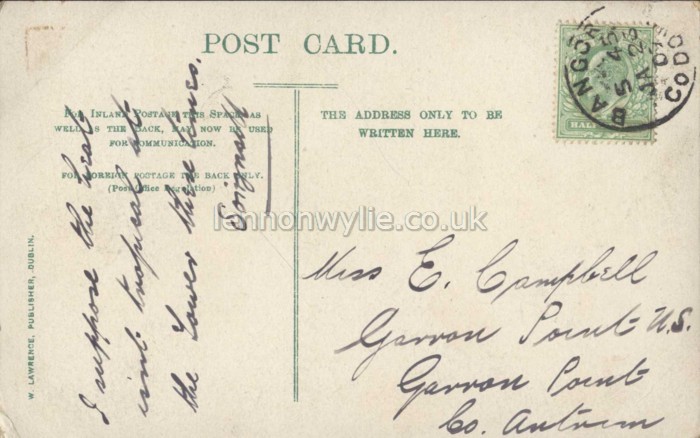 POST CARD.
FOR INLAND POSTAGE THIS SPACE AS
WELL AS THE BACK, MAY NOW BE USED
FOR COMMUNICATION.
FOR FOREIGN POSTAGE THE BACK ONLY.
(Post Office Regulation)
THE ADDRESS ONLY TO BE
WRITTEN HERE.
I suppose the heat
isnt tropical at
the Lower three times.
W. LAWRENCE, PUBLISHER, DUBLIN.
Miss E. Campbell
Garron Point N.S.
Garron Point
Co. Antrim
BANGOR
CO DO
5 45
JA 25
HALF
lennonwylie.co.uk